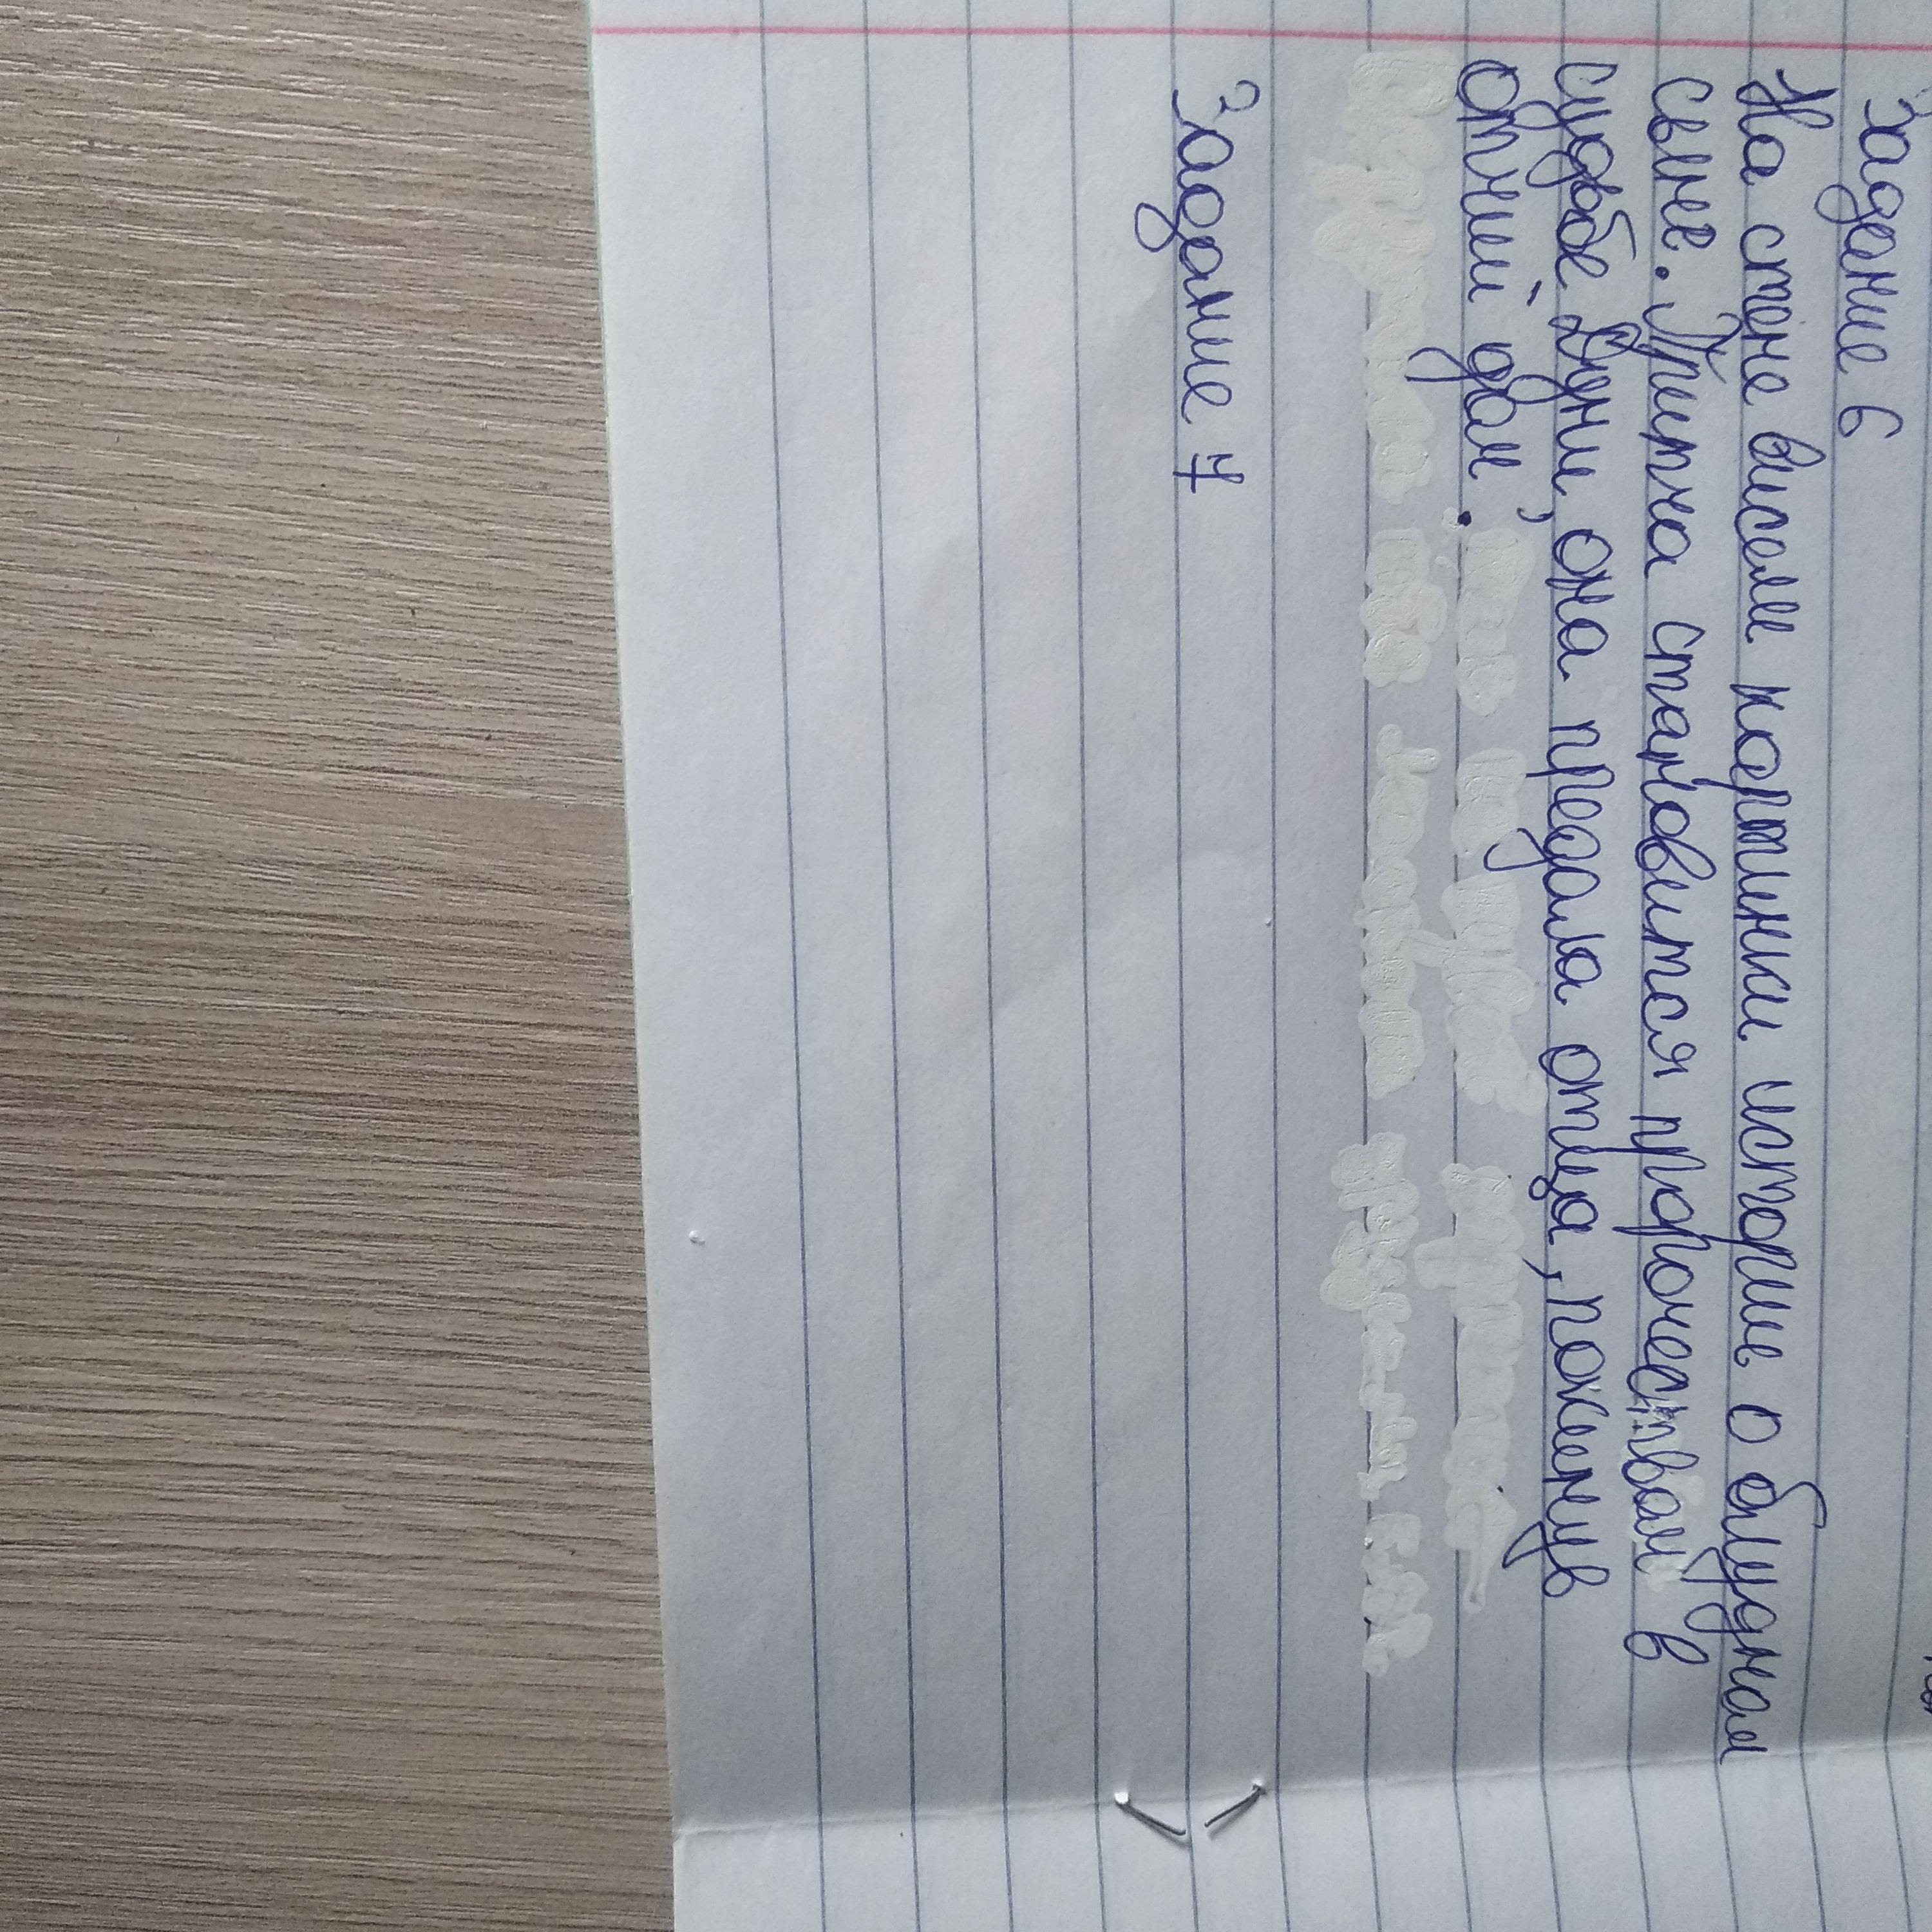 Задание 6
На стене висели картинки истории о блудном
сыне. Притча становится пророчеством в
судьбе Дуни, она предала отца, покинув
отчий дом.
Задание 7